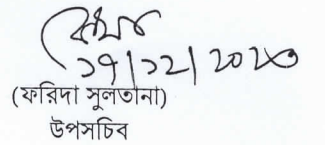 ১৭/১২/২০২৩
(ফরিদা সুলতানা)
উপসচিব